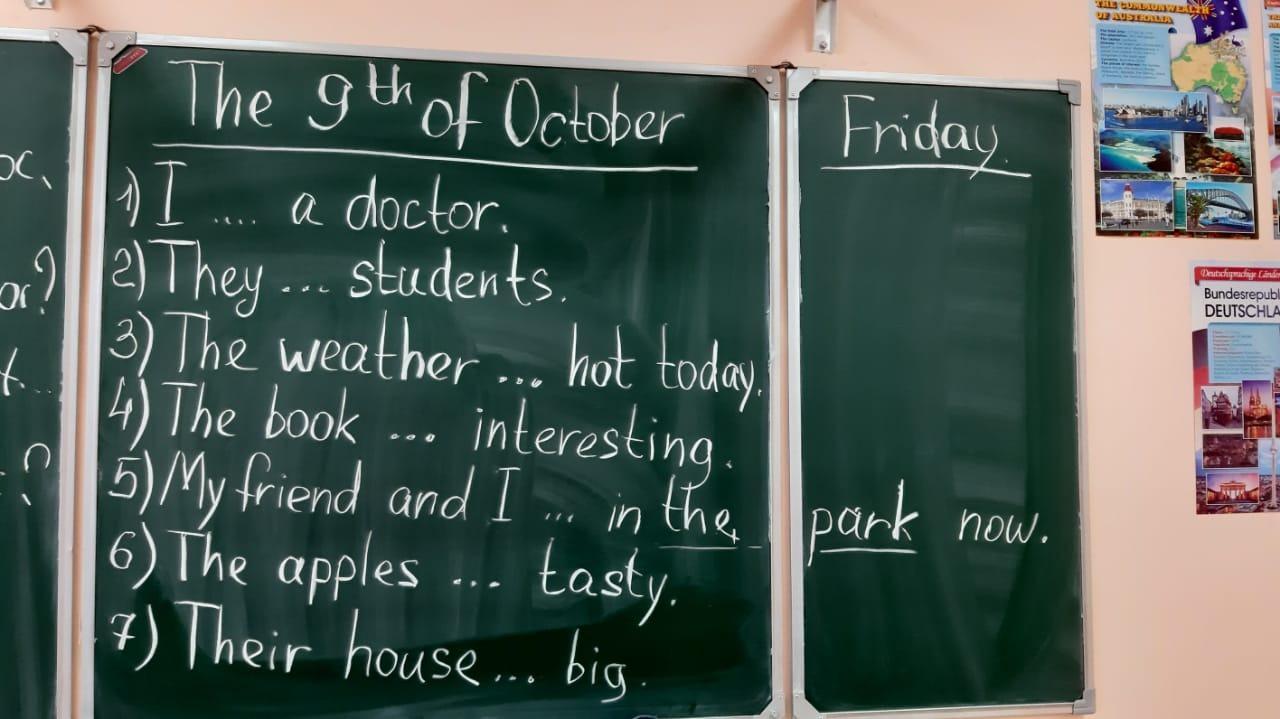 The 9th of October
Friday.
1) I .... a doctor.
2) They ... students.
3) The weather ... hot today.
4) The book ... interesting.
5) My friend and I ... in the park now.
6) The apples ... tasty.
7) Their house ... big.
or?
THE COMMONWEALTH
OF AUSTRALIA
Deutschsprachige
Bundesrepubl
DEUTSCHLA